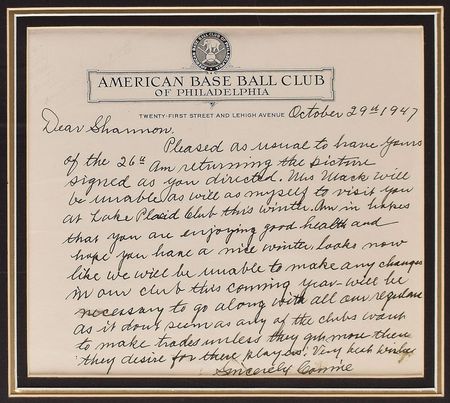 AMERICAN BASE BALL CLUB
OF PHILADELPHIA
TWENTY-FIRST STREET AND LEHIGH AVENUE October 29th 1947
Dear Shannon.
Pleased as usual to have yours
of the 26th am returning the picture
signed as you directed. Mrs Mack will
be unable as will as myself to visit you
at Lake Placid Club this winter. Am in hopes
that you are enjoying good health and
hope you have a nice winter. Looks now
like we will be unable to make any changes
in our club this coming year will be
necessary to go along with all our regulars
as it dont seem as any of the clubs want
to make trades unless they get more then
they desire for there players. Very best wishes
Sincerely Connie